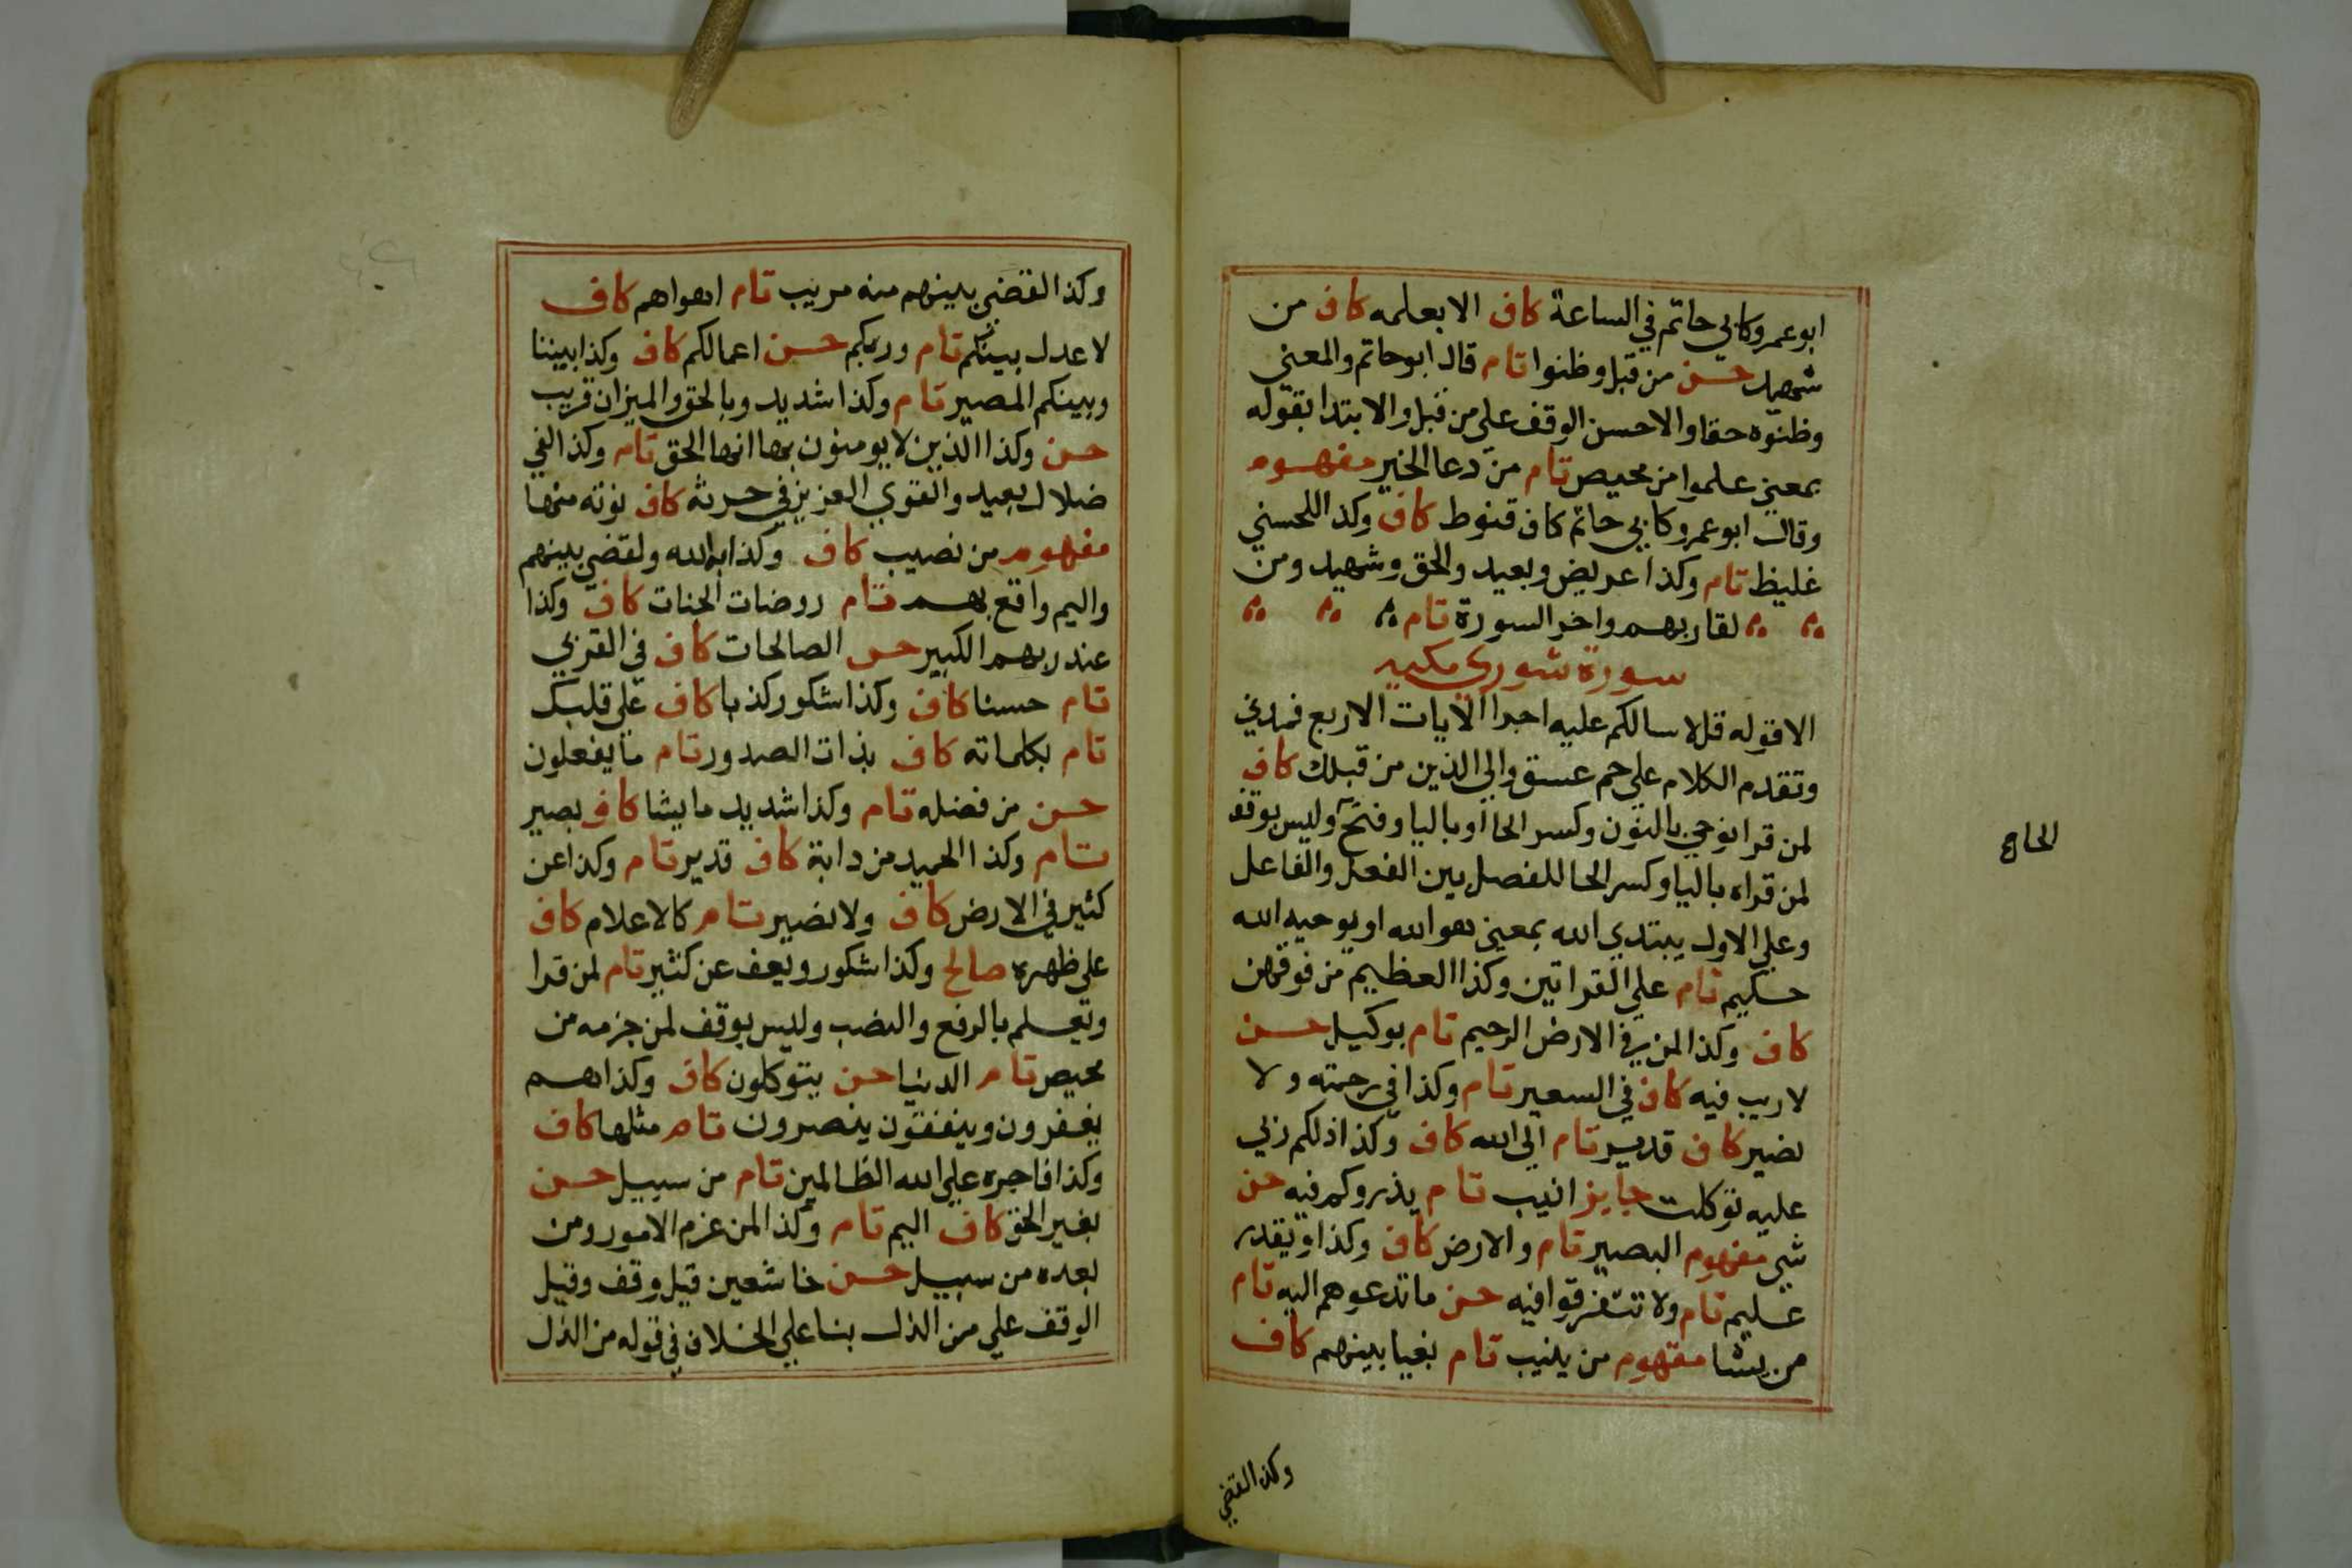 ابو عمرو كابي حاتم في الساعة كاف الا بعلمه كاف من
شهيد حسن من قبل وظنوا تام قال ابو حاتم والمعني
وظنوه حقا والاحسن الوقف علي من قبل والابتدا بقوله
بمعني علموا من محيص تام من دعا الخير مفهوم
وقال ابو عمرو كابي حاتم كاف قنوط كاف وكذا للحسني
غليظ تام وكذا عريض وبعيد والحق وشهيد ومن
لقا ربهم واخر السورة تام
سورة شوري مكيه
الا قوله قل لا سالكم عليه اجرا الآيات الاربع فمدني
وتقدم الكلام علي حم عسق والي الذين من قبلك كاف
لمن قرا نوحي بالنون وكسر الحا او باليا وفتح وليس بوقف
لمن قراه باليا وكسر الحا للفصل بين الفعل والفاعل
وعلي الاول يبتدي الله بمعني هو الله او يوحيه الله
حكيم تام علي القراتين وكذا العظيم من فوقهن
كاف وكذا لمن في الارض الرحيم تام بوكيل حسن
لا ريب فيه كاف في السعير تام وكذا في رحمته ولا
نصير كاف قدير تام الي الله كاف وكذا ذلكم ربي
عليه توكلت جايز انيب تام يذروكم فيه حسن
شي مفهوم البصير تام والارض كاف وكذا ويقدر
عليم تام ولا تتفرقوا فيه حسن ما تدعوهم اليه تام
من يشا مفهوم من ينيب تام بغيا بينهم كاف
وكذا لقضي
الحاء
وكذا لقضي بينهم منه مريب تام اهواهم كاف
لاعدل بينكم تام وربكم حسن اعمالكم كاف وكذا بيننا
وبينكم المصير تام وكذا شديد وبالحق والميزان قريب
حسن وكذا الذين لا يومنون بها انها الحق تام وكذا لفي
ضلال بعيد والقوي العزيز في حرثه كاف نوته منها
مفهوم من نصيب كاف وكذا به الله ولقضي بينهم
واليم واقع بهم تام روضات الجنات كاف وكذا
عند ربهم الكبير حسن الصالحات كاف في القربي
تام حسنا كاف وكذا شكور كذبا كاف علي قلبك
تام بكلماته كاف بذات الصدور تام ما يفعلون
حسن من فضله تام وكذا شديد ما يشا كاف بصير
تام وكذا الحميد من دابة كاف قدير تام وكذا عن
كثير في الارض كاف ولا نصير تام كالاعلام كاف
علي ظهره صالح وكذا شكور ويعف عن كثير تام لمن قرا
وتعلم بالرفع والنصب وليس بوقف لمن جزمه من
محيص تام الدنيا حسن يتوكلون كاف وكذا هم
يغفرون وينفقون ينصرون تام مثلها كاف
وكذا فاجره علي الله الظالمين تام من سبيل حسن
بغير الحق كاف اليم تام وكذا لمن عزم الامور ومن
بعده من سبيل حسن خاشعين قيل وقف وقيل
الوقف علي من الذل بنا علي الخلاف في قوله من الذل